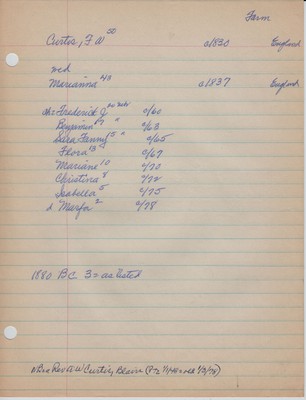 Farm
Curtis, F W 50 c1830 England
Marianna 43 c1837 England
ch: Frederick J c/60
Benjamin 17 " c/63
Sara Fanny 15 " c/65
Flora 13 c/67
Mariane 10 c/70
Christina 8 c/72
Isabella 5 c/75
d Marfa 2 c/78
1880 BC 3 = as listed
W Curtis, Blain